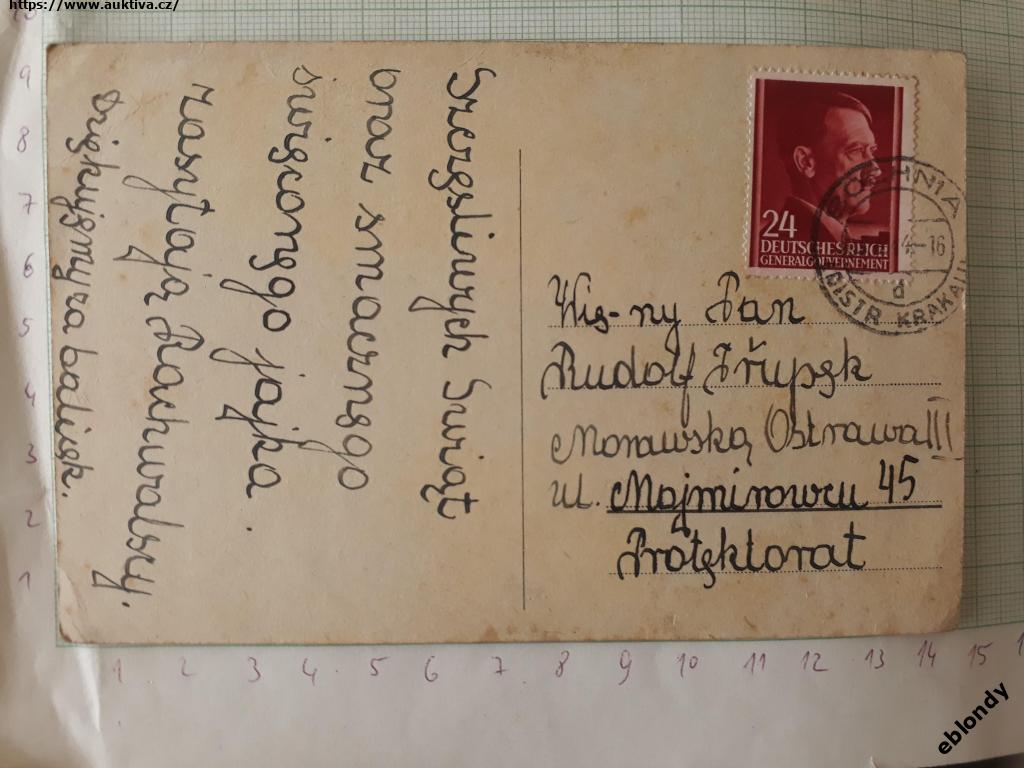 https://www.auktiva.cz/
Szczęśliwych Świąt
oraz smacznego
święconego jajka.
zasyłają Rachwalscy.
Dziękujemy za
24
DEUTSCHES REICH
GENERALGOUVERNEMENT
BOCHNIA
16
d
DISTR KRAKAU
Wie-ny Pan
Rudolf
Morawska Ostrawa III
ul. Mojmirowcu 45
Protektorat
10
9
8
7
6
5
4
3
2
1
1 2 3 4 5 6 7 8 9 10 11 12 13 14 15
eblondy